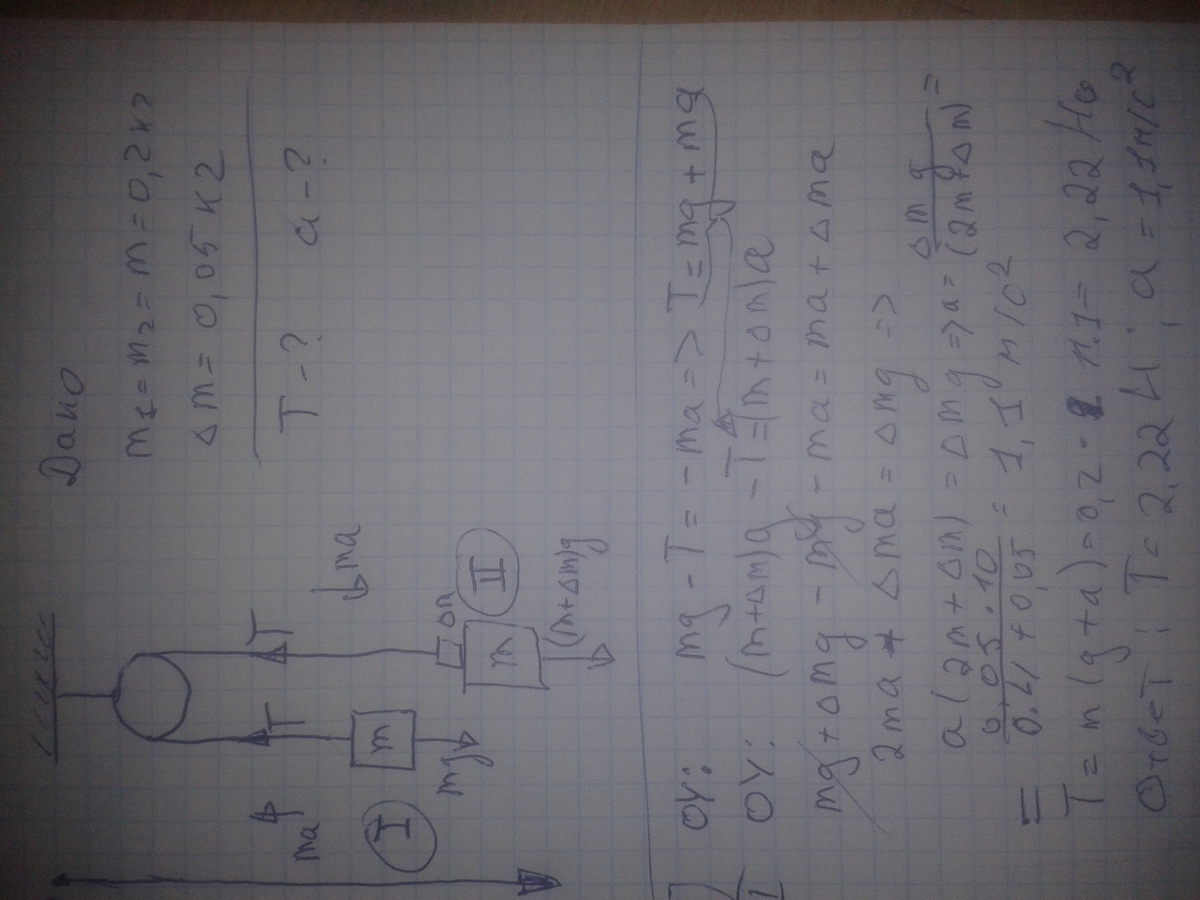 Дано
m₁ = m₂ = m = 0,2 кг
Δm = 0,05 кг
T - ? a - ?
T
T
ma
ma
I
m
mg
Δm
m
II
(m+Δm)g
OY: mg - T = -ma => T = mg + ma
OY: (m+Δm)g - T = (m+Δm)a
mg + Δmg - mg - ma = ma + Δma
2ma + Δma = Δmg =>
a(2m+Δm) = Δmg => a = Δmg/(2m+Δm) =
= 0,05·10/0.4+0,05 = 1,1 м/с²
T = m(g+a) = 0,2 · 11.1 = 2,22 H
Ответ: T = 2,22 H; a = 1,1 м/с²